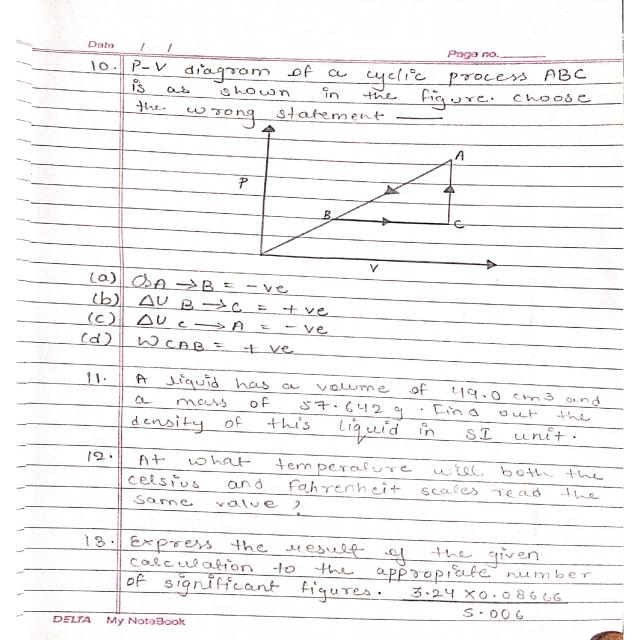 Date / /
Page no.
10. P-V diagram of a cyclic process ABC
is as shown in the figure. choose
the wrong statement —
A
P
B
C
V
(a) QA → B = -ve
(b) ΔU B → C = +ve
(c) ΔU C → A = -ve
(d) W CAB = +ve
11. A liquid has a volume of 49.0 cm3 and
a mass of 57.642 g. Find out the
density of this liquid in SI unit.
12. At what temperature will both the
celsius and Fahrenheit scales read the
same value?
13. Express the result of the given
calculation to the appropiate number
of significant figures. 3.24 X0.08666
5.006
DELTA My NoteBook